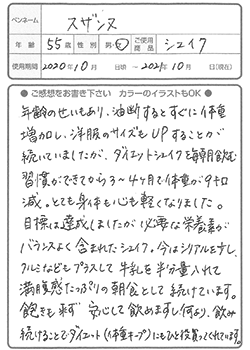 ペンネーム スザンヌ
年齢 55歳 性別 男・女 ご使用商品 シェイク
使用期間 2020年10月 日頃 ~ 2021年10月 日(現在)
● ご感想をお書き下さい カラーのイラストもOK ●
年齢のせいもあり、油断するとすぐに体重
増加し、洋服のサイズもUPすることが
続いていましたが、ダイエットシェイクを毎朝飲む
習慣ができてから3~4ヶ月で体重が9キロ
減。とても身体も心も軽くなりました。
目標は達成しましたが必要な栄養素が
バランスよく含まれたシェイク。今はシリアルを少し、
クルミなどもプラスして牛乳を半分量入れて
満腹感たっぷりの朝食として続けています。
飽きも来ず 安心して飲めますし何より、飲み
続けることでダイエット(体重キープ)にもひと役買ってくれています。